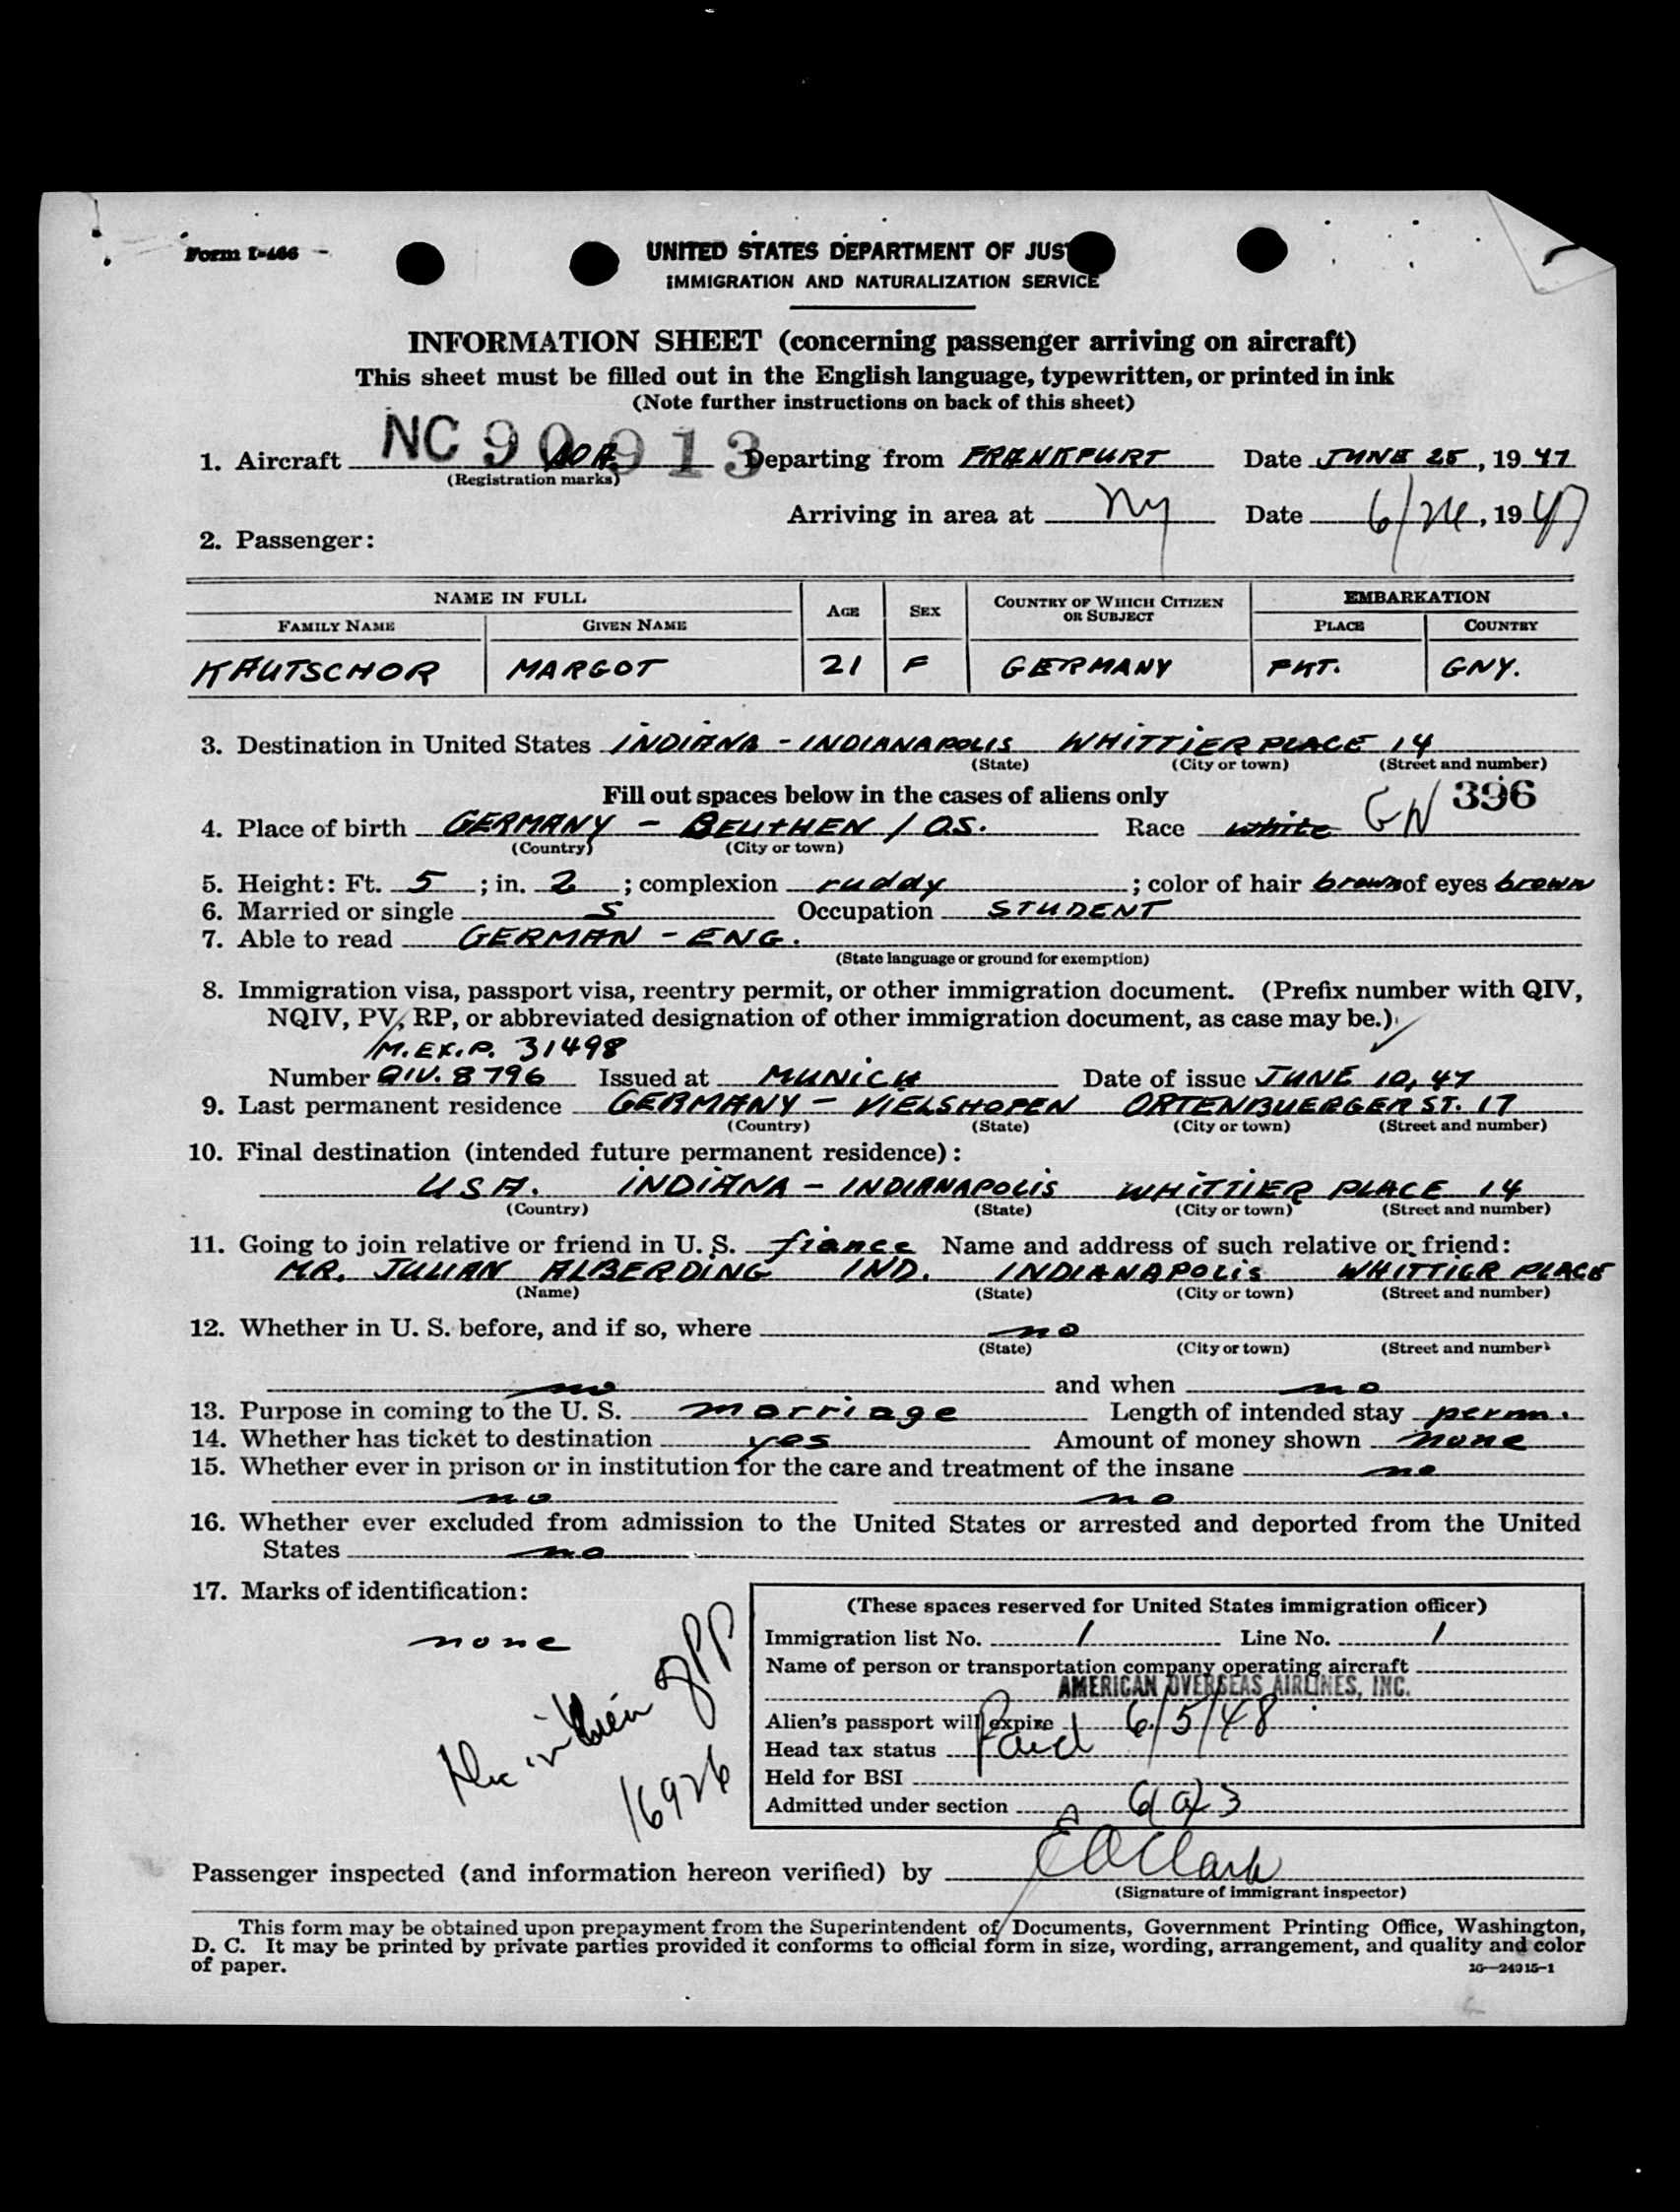 Form I-466
UNITED STATES DEPARTMENT OF JUST
IMMIGRATION AND NATURALIZATION SERVICE
INFORMATION SHEET (concerning passenger arriving on aircraft)
This sheet must be filled out in the English language, typewritten, or printed in ink
(Note further instructions on back of this sheet)
1. Aircraft NC 90913 AOA Departing from FRANKFURT Date JUNE 25, 1947
(Registration marks)
Arriving in area at NY Date 6/26, 1947
2. Passenger:
NAME IN FULL AGE SEX COUNTRY OF WHICH CITIZEN OR SUBJECT EMBARKATION
FAMILY NAME GIVEN NAME PLACE COUNTRY
KAUTSCHOR MARGOT 21 F GERMANY FKT. GNY.
3. Destination in United States INDIANA - INDIANAPOLIS WHITTIER PLACE 14
(State) (City or town) (Street and number)
Fill out spaces below in the cases of aliens only GN 396
4. Place of birth GERMANY - BEUTHEN / OS. Race white
(Country) (City or town)
5. Height: Ft. 5; in. 2; complexion ruddy; color of hair brown of eyes brown
6. Married or single S Occupation STUDENT
7. Able to read GERMAN - ENG.
(State language or ground for exemption)
8. Immigration visa, passport visa, reentry permit, or other immigration document. (Prefix number with QIV,
NQIV, PV, RP, or abbreviated designation of other immigration document, as case may be.)
M.EX.P. 31498
Number QIV. 8796 Issued at MUNICH Date of issue JUNE 10, 47
9. Last permanent residence GERMANY - VIELSHOFEN ORTENBUERGERST. 17
(Country) (State) (City or town) (Street and number)
10. Final destination (intended future permanent residence):
USA. INDIANA - INDIANAPOLIS WHITTIER PLACE 14
(Country) (State) (City or town) (Street and number)
11. Going to join relative or friend in U. S. fiancé Name and address of such relative or friend:
MR. JULIAN ALBERDING IND. INDIANAPOLIS WHITTIER PLACE
(Name) (State) (City or town) (Street and number)
12. Whether in U. S. before, and if so, where no
(State) (City or town) (Street and number)
no and when no
13. Purpose in coming to the U. S. marriage Length of intended stay perm.
14. Whether has ticket to destination yes Amount of money shown none
15. Whether ever in prison or in institution for the care and treatment of the insane no
no no
16. Whether ever excluded from admission to the United States or arrested and deported from the United
States no
17. Marks of identification:
none
16926
(These spaces reserved for United States immigration officer)
Immigration list No. 1 Line No. 1
Name of person or transportation company operating aircraft
AMERICAN OVERSEAS AIRLINES, INC.
Alien's passport will expire 6/5/48
Head tax status Paid
Held for BSI
Admitted under section 6a3
Passenger inspected (and information hereon verified) by E A Clark
(Signature of immigrant inspector)
This form may be obtained upon prepayment from the Superintendent of Documents, Government Printing Office, Washington,
D. C. It may be printed by private parties provided it conforms to official form in size, wording, arrangement, and quality and color
of paper.
16—24915-1